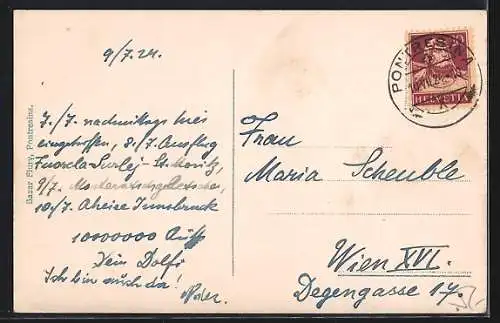 9/7.24.
7./7. nachmittags hier
eingetroffen, 8./7. Ausflug
Fuorcla-Surlej - St. Moritz,
9/7. Morteratschgletscher,
10./7. Abreise Innsbruck
10000000
Dein Dolfi
Ich bin auch da!
Bazar Flury, Pontresina.
PONTRESINA
HELVETIA
Frau
Maria Scheuble
Wien XVI.
Degengasse 17.